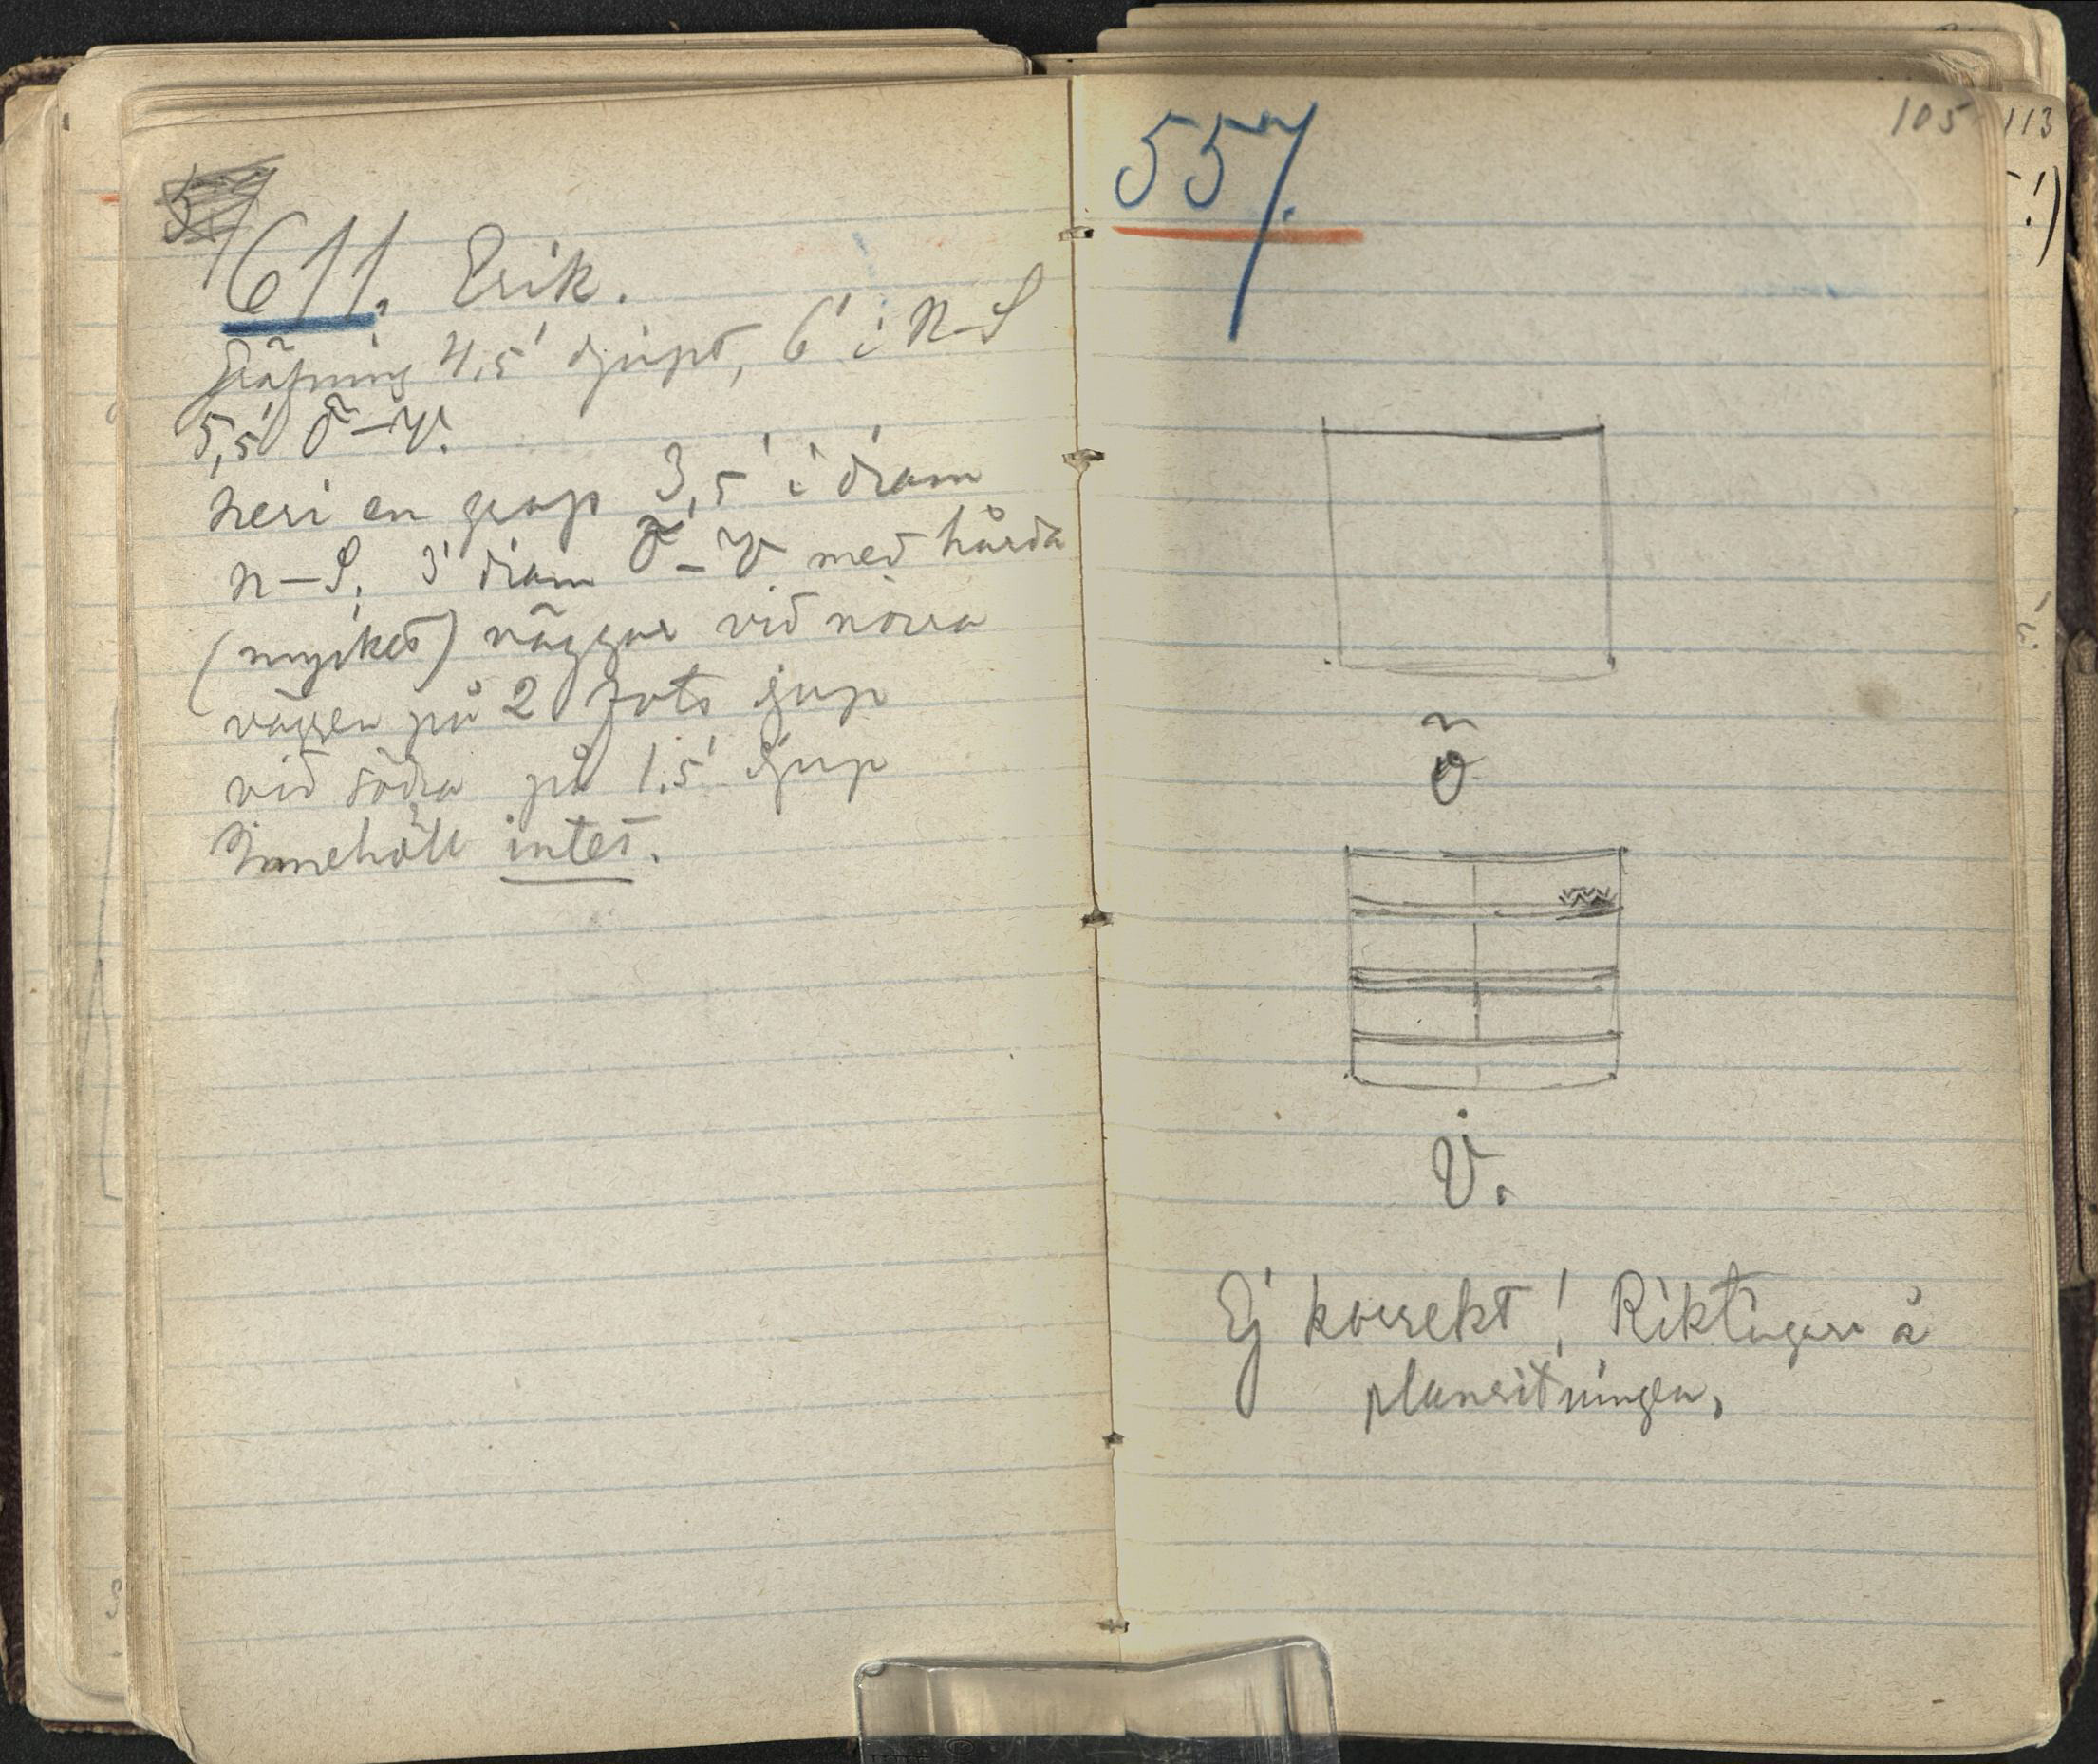 611. Erik.
Gräfning 4,5' djupt, 6' i N–S
5,5' Ö–V.
heri en grop 3,5' i diam
N–S, 3' diam Ö–V med hårda
(mycket) väggar vid norra
väggen på 2 fots djup
vid södra på 1.5' djup
Innehöll intet.
105
113
557.
Ö
V.
Ej korrekt! Riktigare å
planritningen.